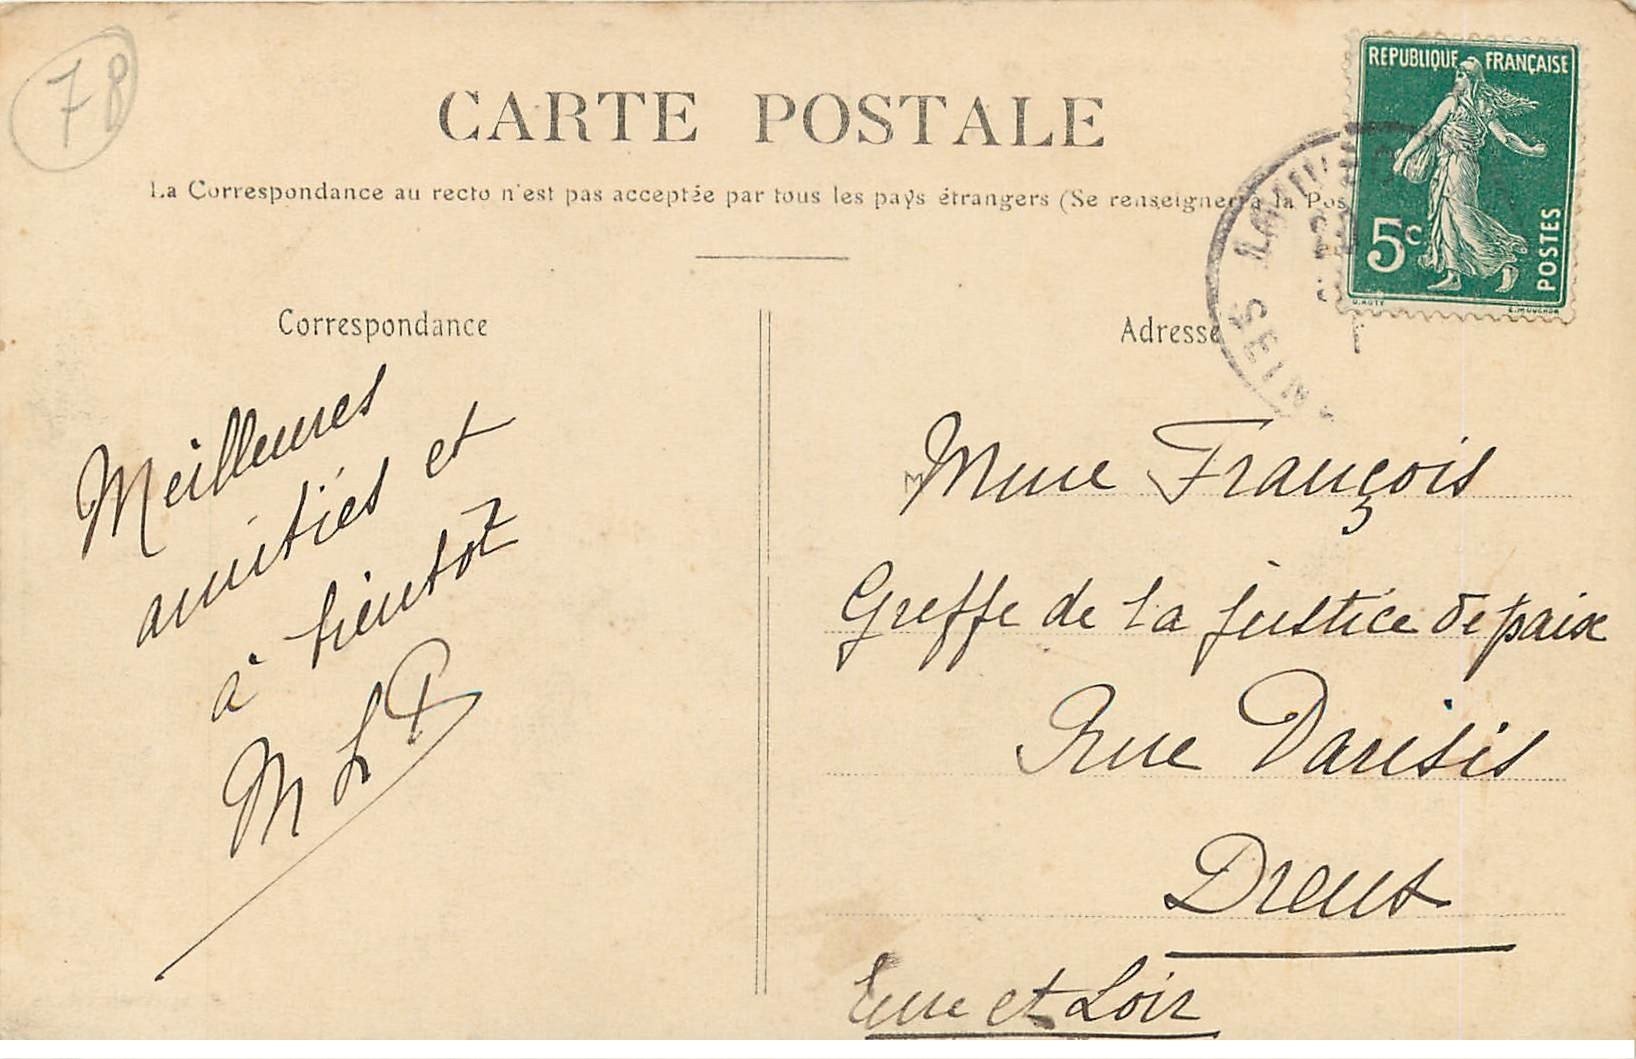 78
CARTE POSTALE
La Correspondance au recto n'est pas acceptée par tous les pays étrangers (Se renseigner à la Pos
REPUBLIQUE FRANÇAISE
5c
POSTES
O. ROTY
E. MOUCHON
Correspondance
Meilleures
amitiés et
à bientôt
M L P
Adresse
M
Mme François
Greffe de la justice de paix
Rue Parisis
Dreux
Eure et Loir